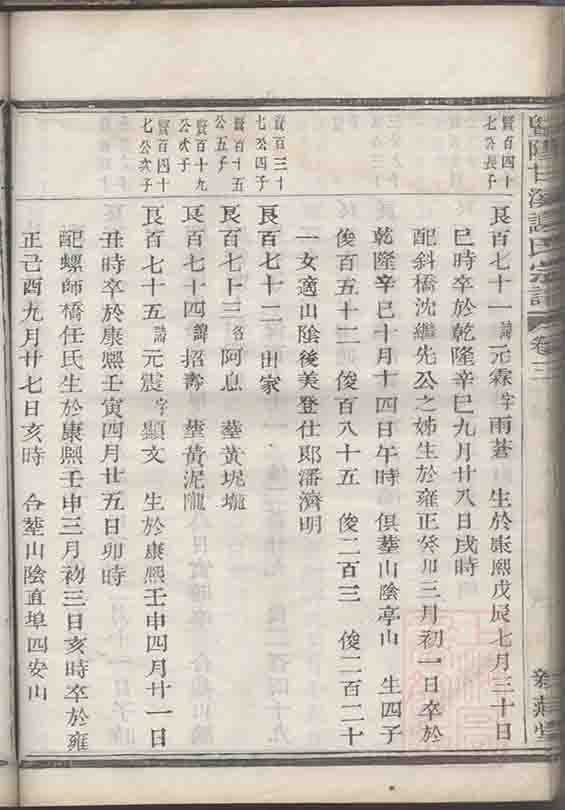 暨陽甘溪謝氏宗譜 卷三
賢百四十
七公長子
艮百七十一諱元霖字雨蒼 生於康熙戊辰七月三十日
巳時卒於乾隆辛巳九月廿八日戌時
配斜橋沈繼先公之姊生於雍正癸卯三月初一日卒於
乾隆辛巳十月十四日午時 俱塟山陰亭山 生四子
俊百五十三 俊百八十五 俊二百三 俊二百二十
一女適山陰後美登仕郎潘濟明
賢百三十
七公四子
艮百七十二 出家
賢百十五
公五子
艮百七十三名阿息 塟黃坭壠
賢百十九
公次子
艮百七十四諱招壽 塟黃泥隴
賢百四十
七公次子
艮百七十五諱元震字顯文 生於康熙壬申四月廿一日
丑時卒於康熙壬寅四月廿五日卯時
配螺師橋任氏生於康熙壬申三月初三日亥時卒於雍
正己酉九月廿七日亥時 合塟山陰直埠四安山